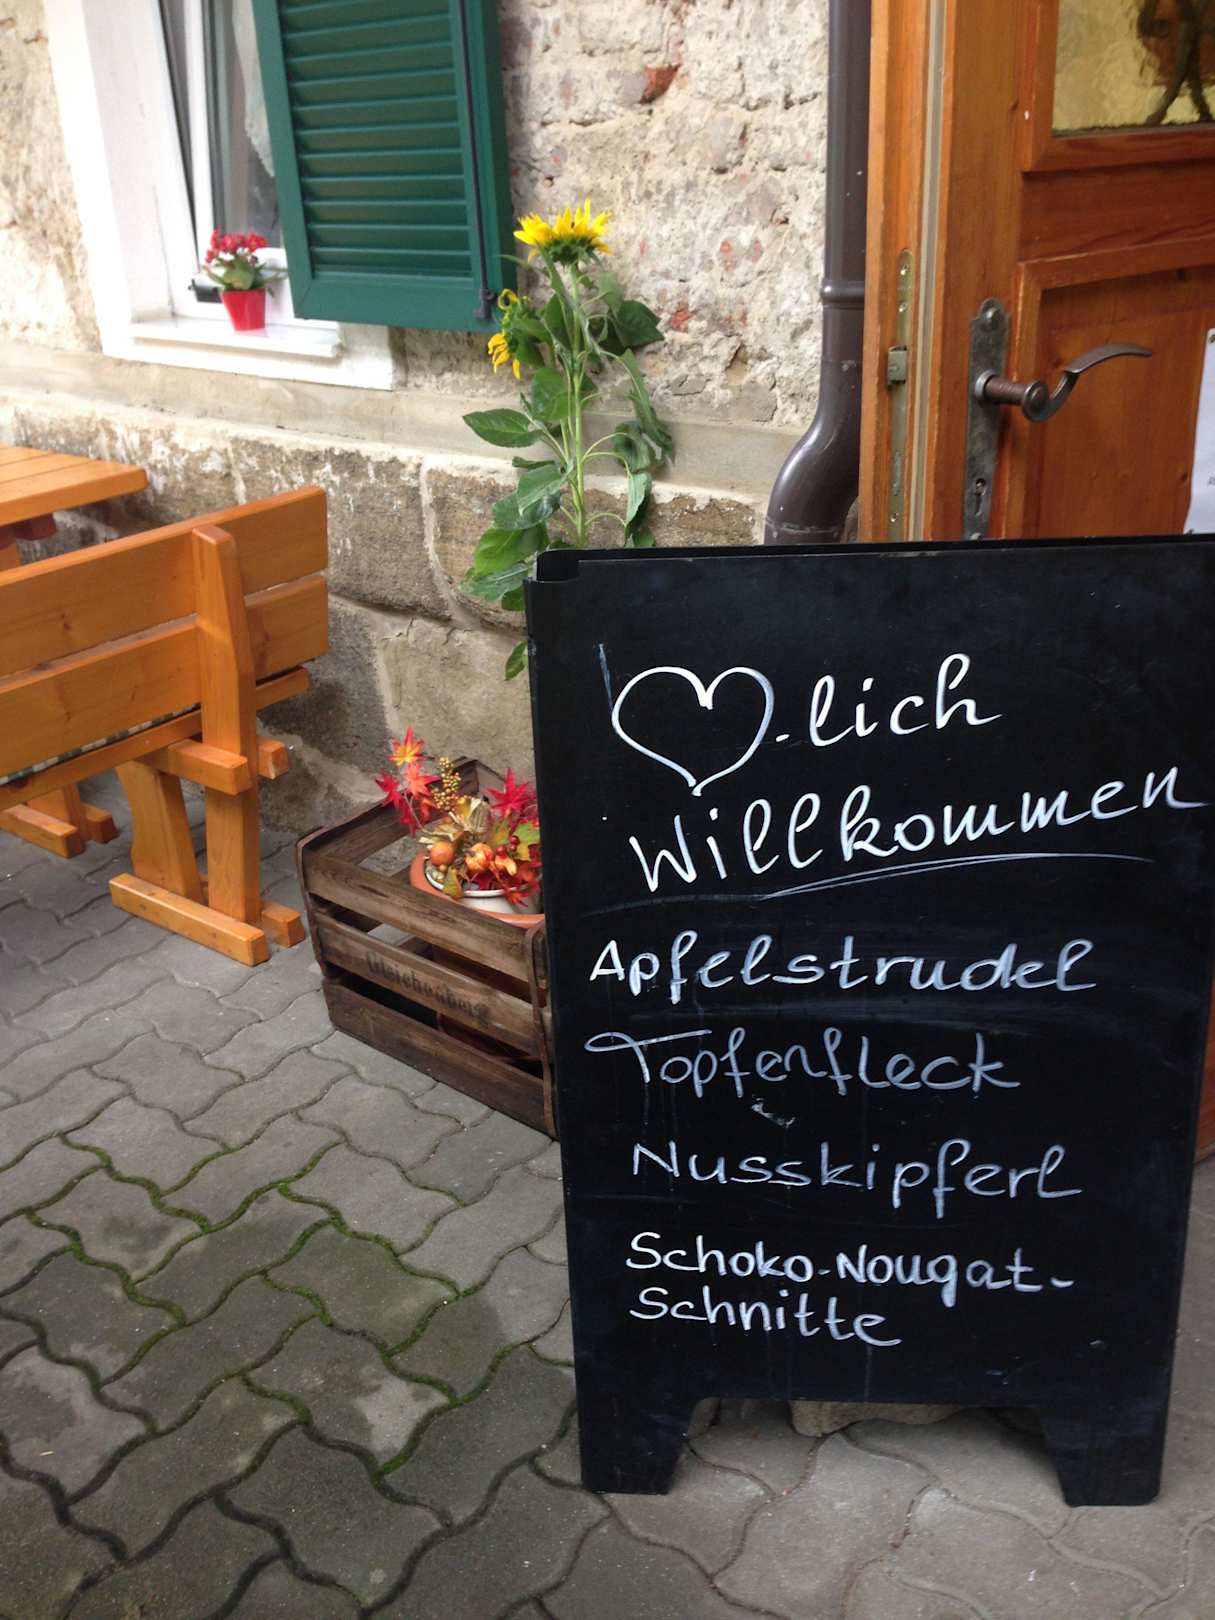 ♡-lich
Willkommen
Apfelstrudel
Topfenfleck
Nusskipferl
Schoko-Nougat-
Schnitte